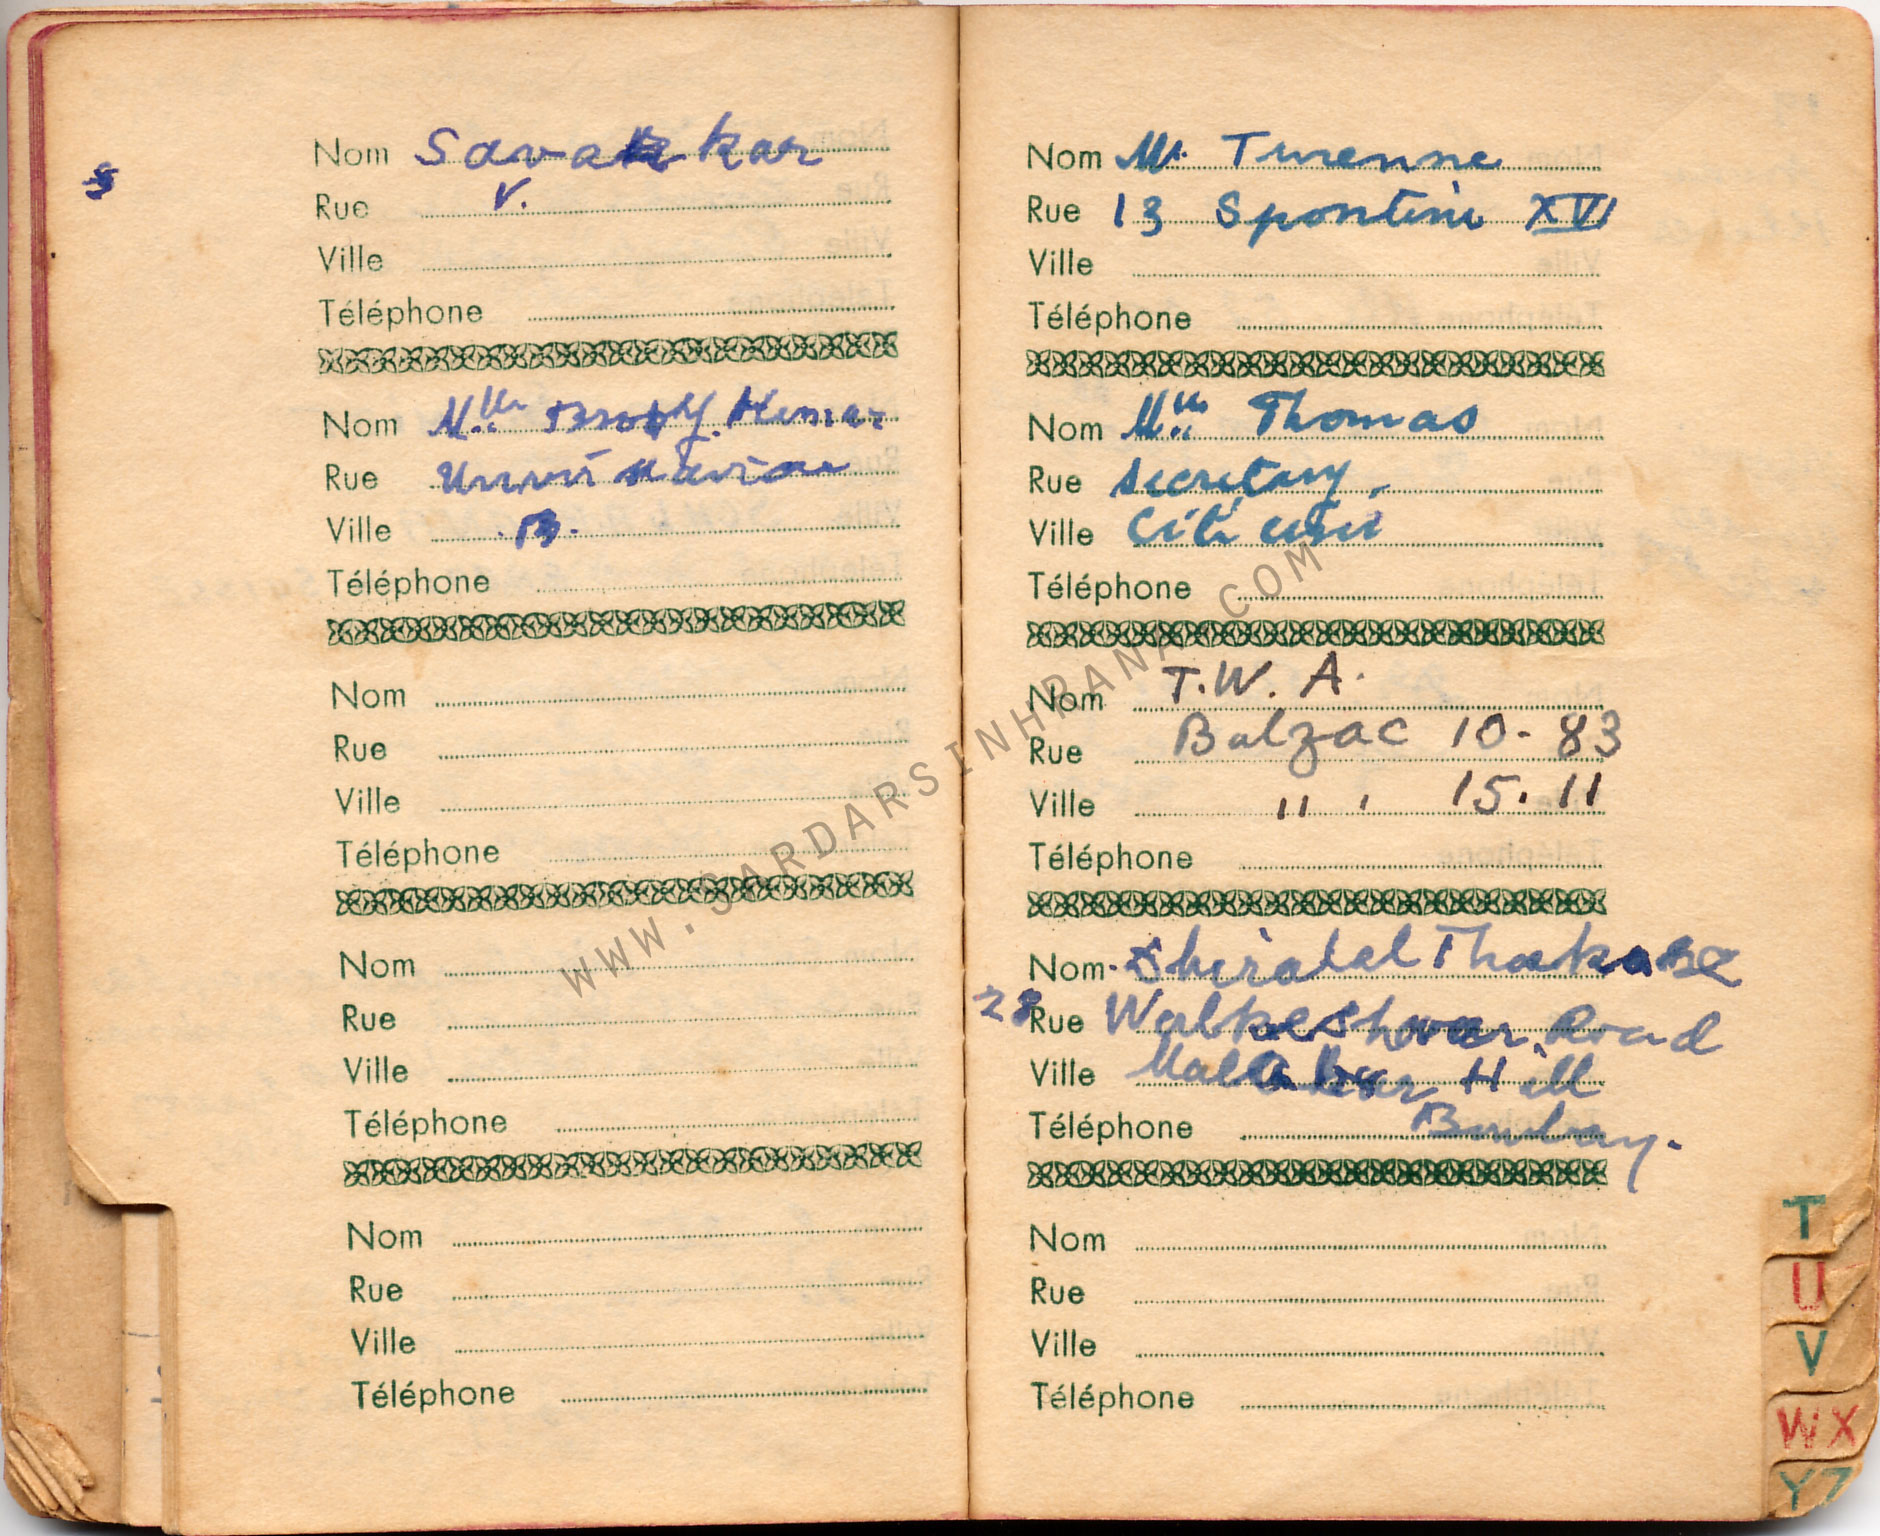 Nom Savarkar
Rue V.
Ville
Téléphone
Nom Mlle
Rue
Ville .B.
Téléphone
Nom
Rue
Ville
Téléphone
Nom
Rue
Ville
Téléphone
Nom
Rue
Ville
Téléphone
Nom Mr. Turenne
Rue 13 Spontini XVI
Ville
Téléphone
Nom Mlle Thomas
Rue Secretary,
Ville Cité Univ
Téléphone
Nom T.W.A.
Rue Balzac 10-83
Ville 11 , 15.11
Téléphone
Nom Shiralal Thakase
28 Rue Walkeshwar Road
Ville Malabar Hill
Téléphone Bombay.
Nom
Rue
Ville
Téléphone
T
U
V
WX
YZ
WWW.SARDARSINHRANA.COM